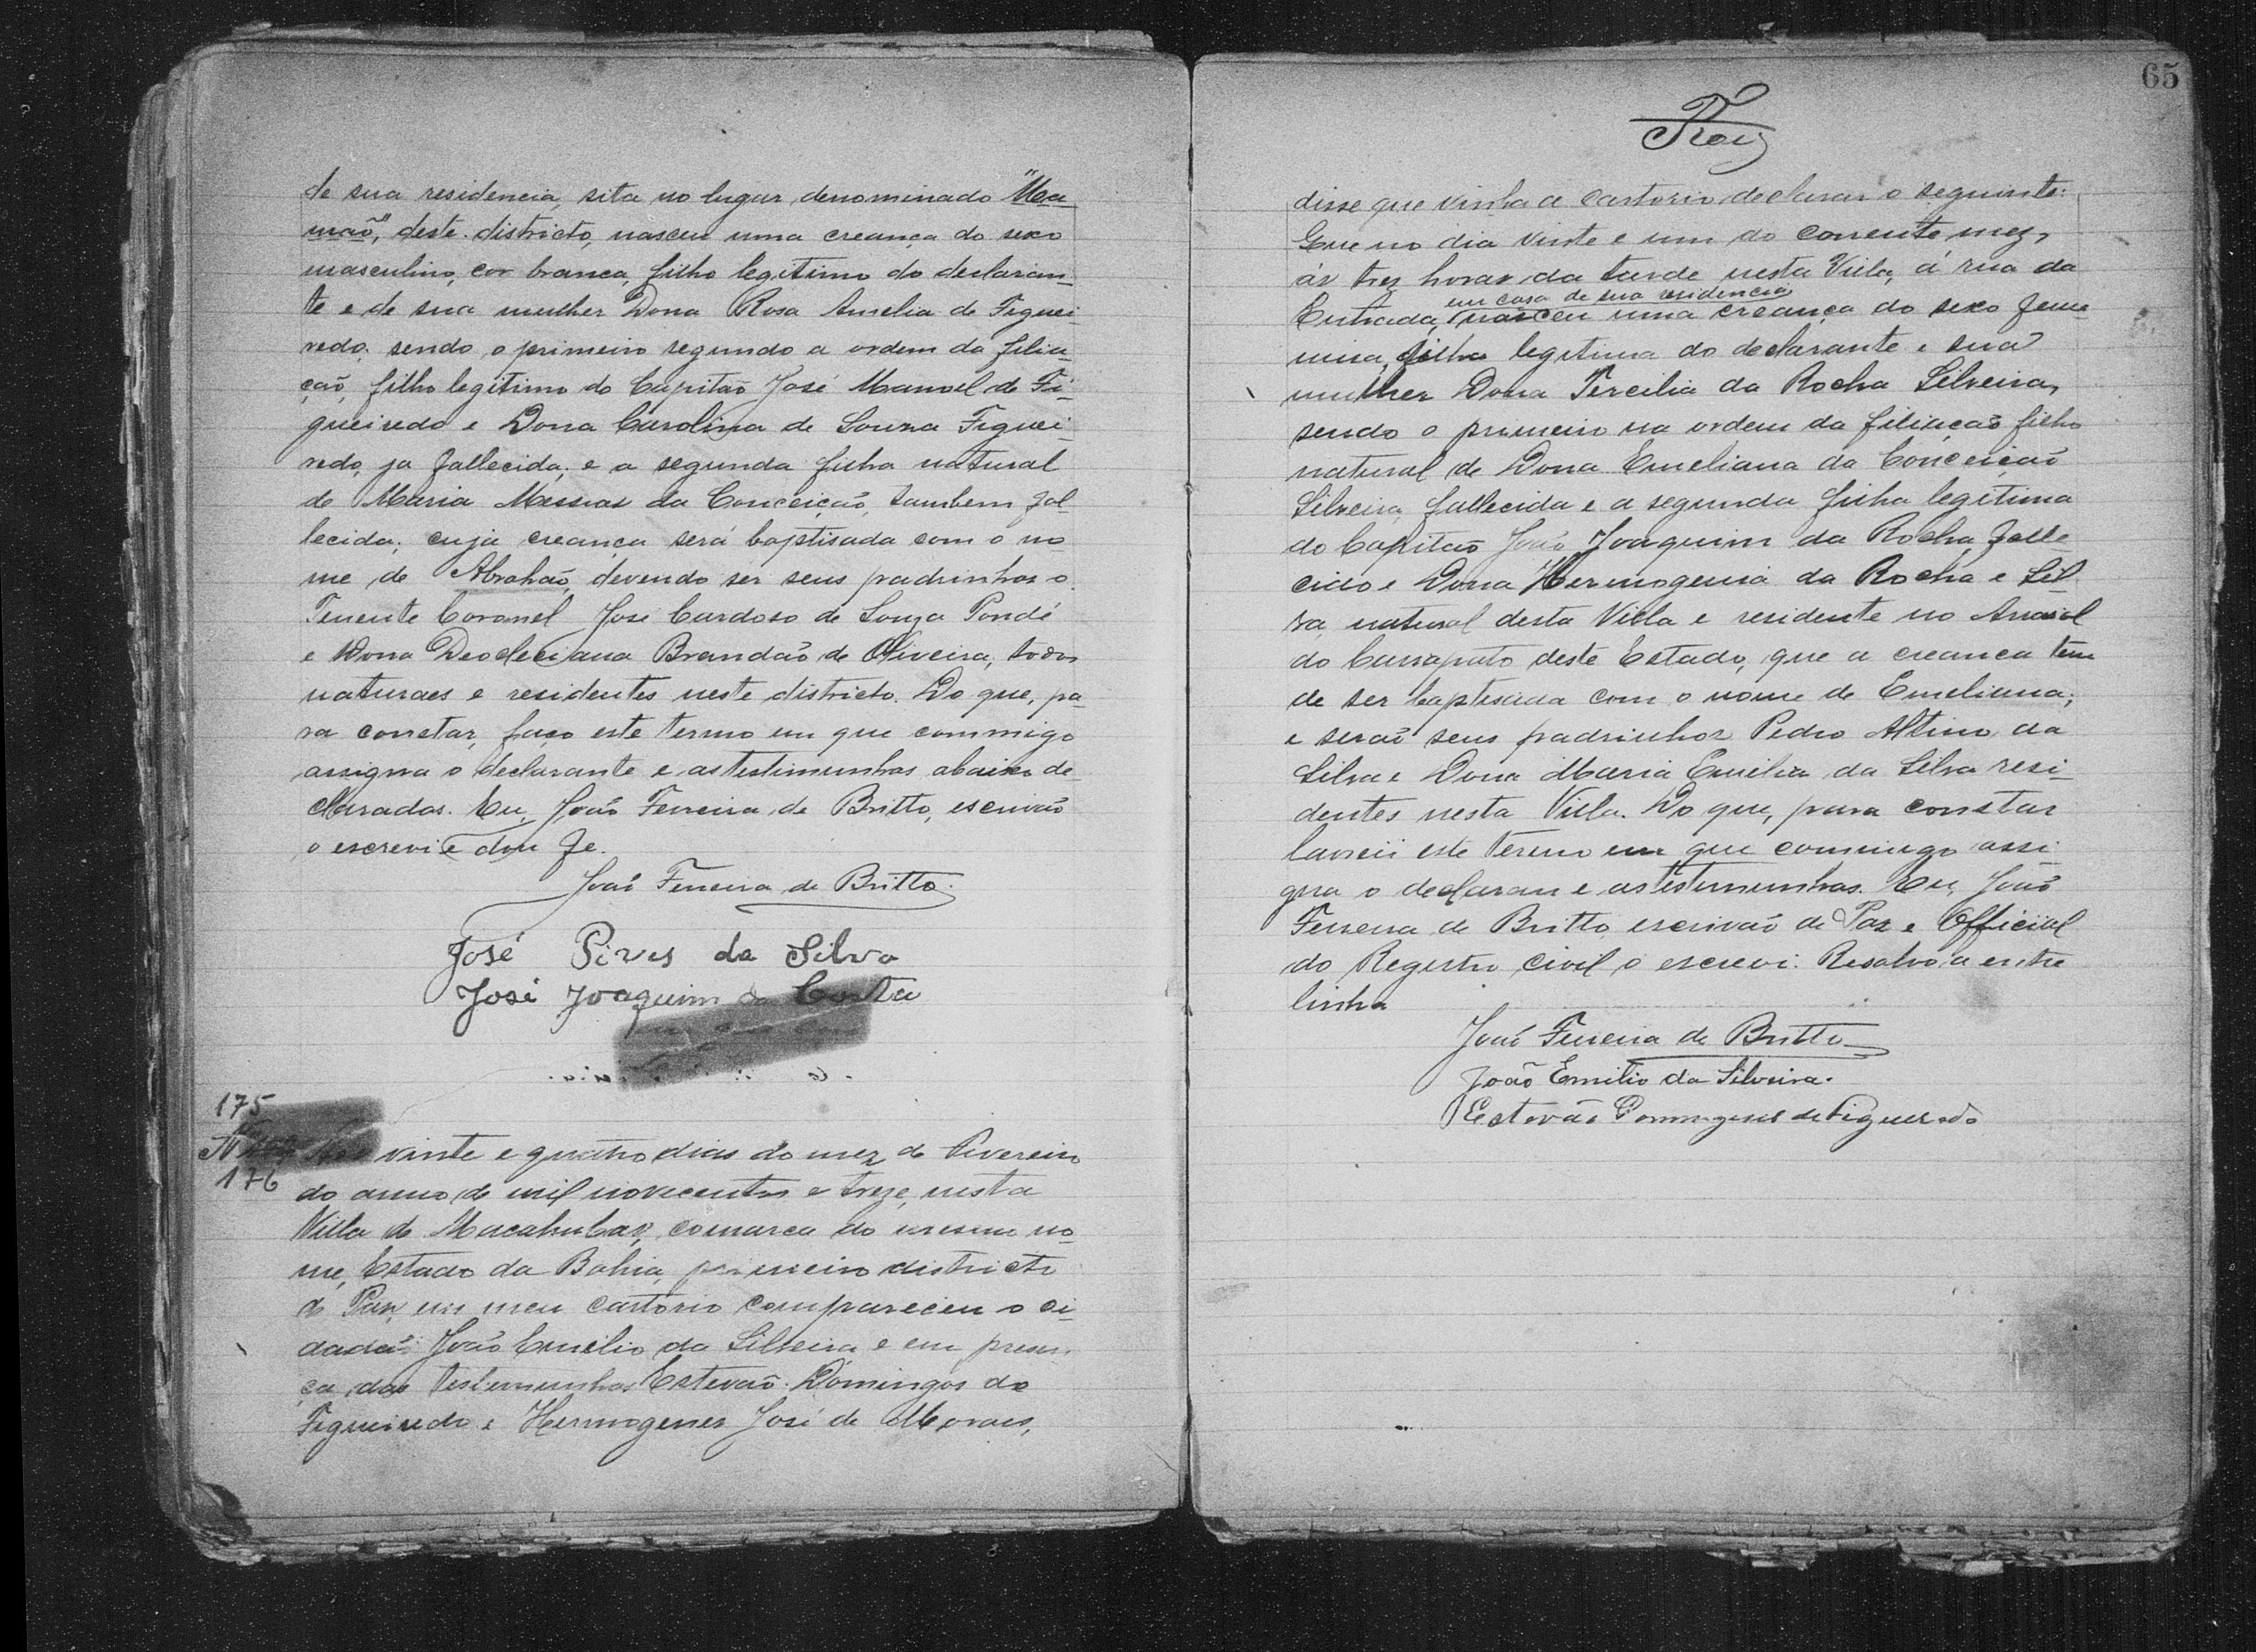 de sua residencia, sita no lugar denominado "Ma-
mão", deste districto, nasceu uma creança do sexo
masculino, cor branca, filho legitimo do declaran-
te e de sua mulher Dona Rosa Amelia de Figuei-
redo. sendo o primeiro segundo a ordem da filia-
ção, filho legitimo do Capitão José Manoel de Fi-
gueiredo e Dona Carolina de Souza Figuei-
redo, ja fallecida; e a segunda filha natural
de Maria Messias da Conceição, tambem fal-
lecida; cuja creança será baptisada com o no-
me de Abrahão, devendo ser seus padrinhos o
Tenente Coronel José Cardoso de Souza Pondé
e Dona Deocleciana Brandão de Oliveira, todos
naturaes e residentes neste districto. Do que, pa-
ra constar, faço este termo em que commigo
assigna o declarante e as testimunhas abaixo de-
claradas. Eu, João Ferreira de Britto, escrivão
o escrevi e dou fe.
João Ferreira de Britto.
José Pires da Silva
José Joaquim da Costa
175
176
vinte e quatro dias do mez de Fevereiro
do anno de mil novecentos e treze, nesta
Villa de Macahubas, comarca do mesmo no-
me, Estado da Bahia, primeiro districto
de Paz, em meu cartorio compareceu o ci-
dadão João Emilio da Silveira e em presen-
ça das testemunhas Estevão Domingos de
Figueiredo e Hermogenes José de Moraes,
65
disse que vinha a cartorio declarar o seguinte:
Que no dia vinte e um do corrente mez,
ás tres horas da tarde nesta Villa, á rua da
em casa de sua residencia
Entrada, nasceu uma creança do sexo feme-
nina, filha legitima do declarante e sua
mulher Dona Tercilia da Rocha Silveira,
sendo o primeiro na ordem da filiação filho
natural de Dona Emeliana da Conceição
Silveira, fallecida e a segunda filha legitima
do Capitão João Joaquim da Rocha, falle-
cido e Dona Hermogenia da Rocha e Sil-
va, natural desta Villa e residente no Arraial
do Carrapato deste Estado, que a creança tem
de ser baptisada com o nome de Emeliana;
e serão seus padrinhos Pedro Altino da
Silva e Dona Maria Emilia da Silva resi-
dentes nesta Villa. Do que, para constar
lavrei este termo em que commigo assi-
gna o declaran e as testemunhas. Eu, João
Ferreira de Britto, escrivão de Paz e Official
do Registro civil o escrevi. Resalvo a entre
linha
João Ferreira de Britto
João Emilio da Silveira.
Estevão Domingues de Figueredo